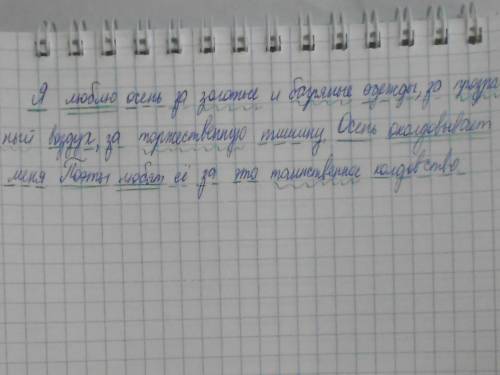 Я люблю осень за золотые и багряные одежды, за прозра
ный воздух, за торжественную тишину. Осень околдовывает
меня Поэты любят её за это таинственное колдовство